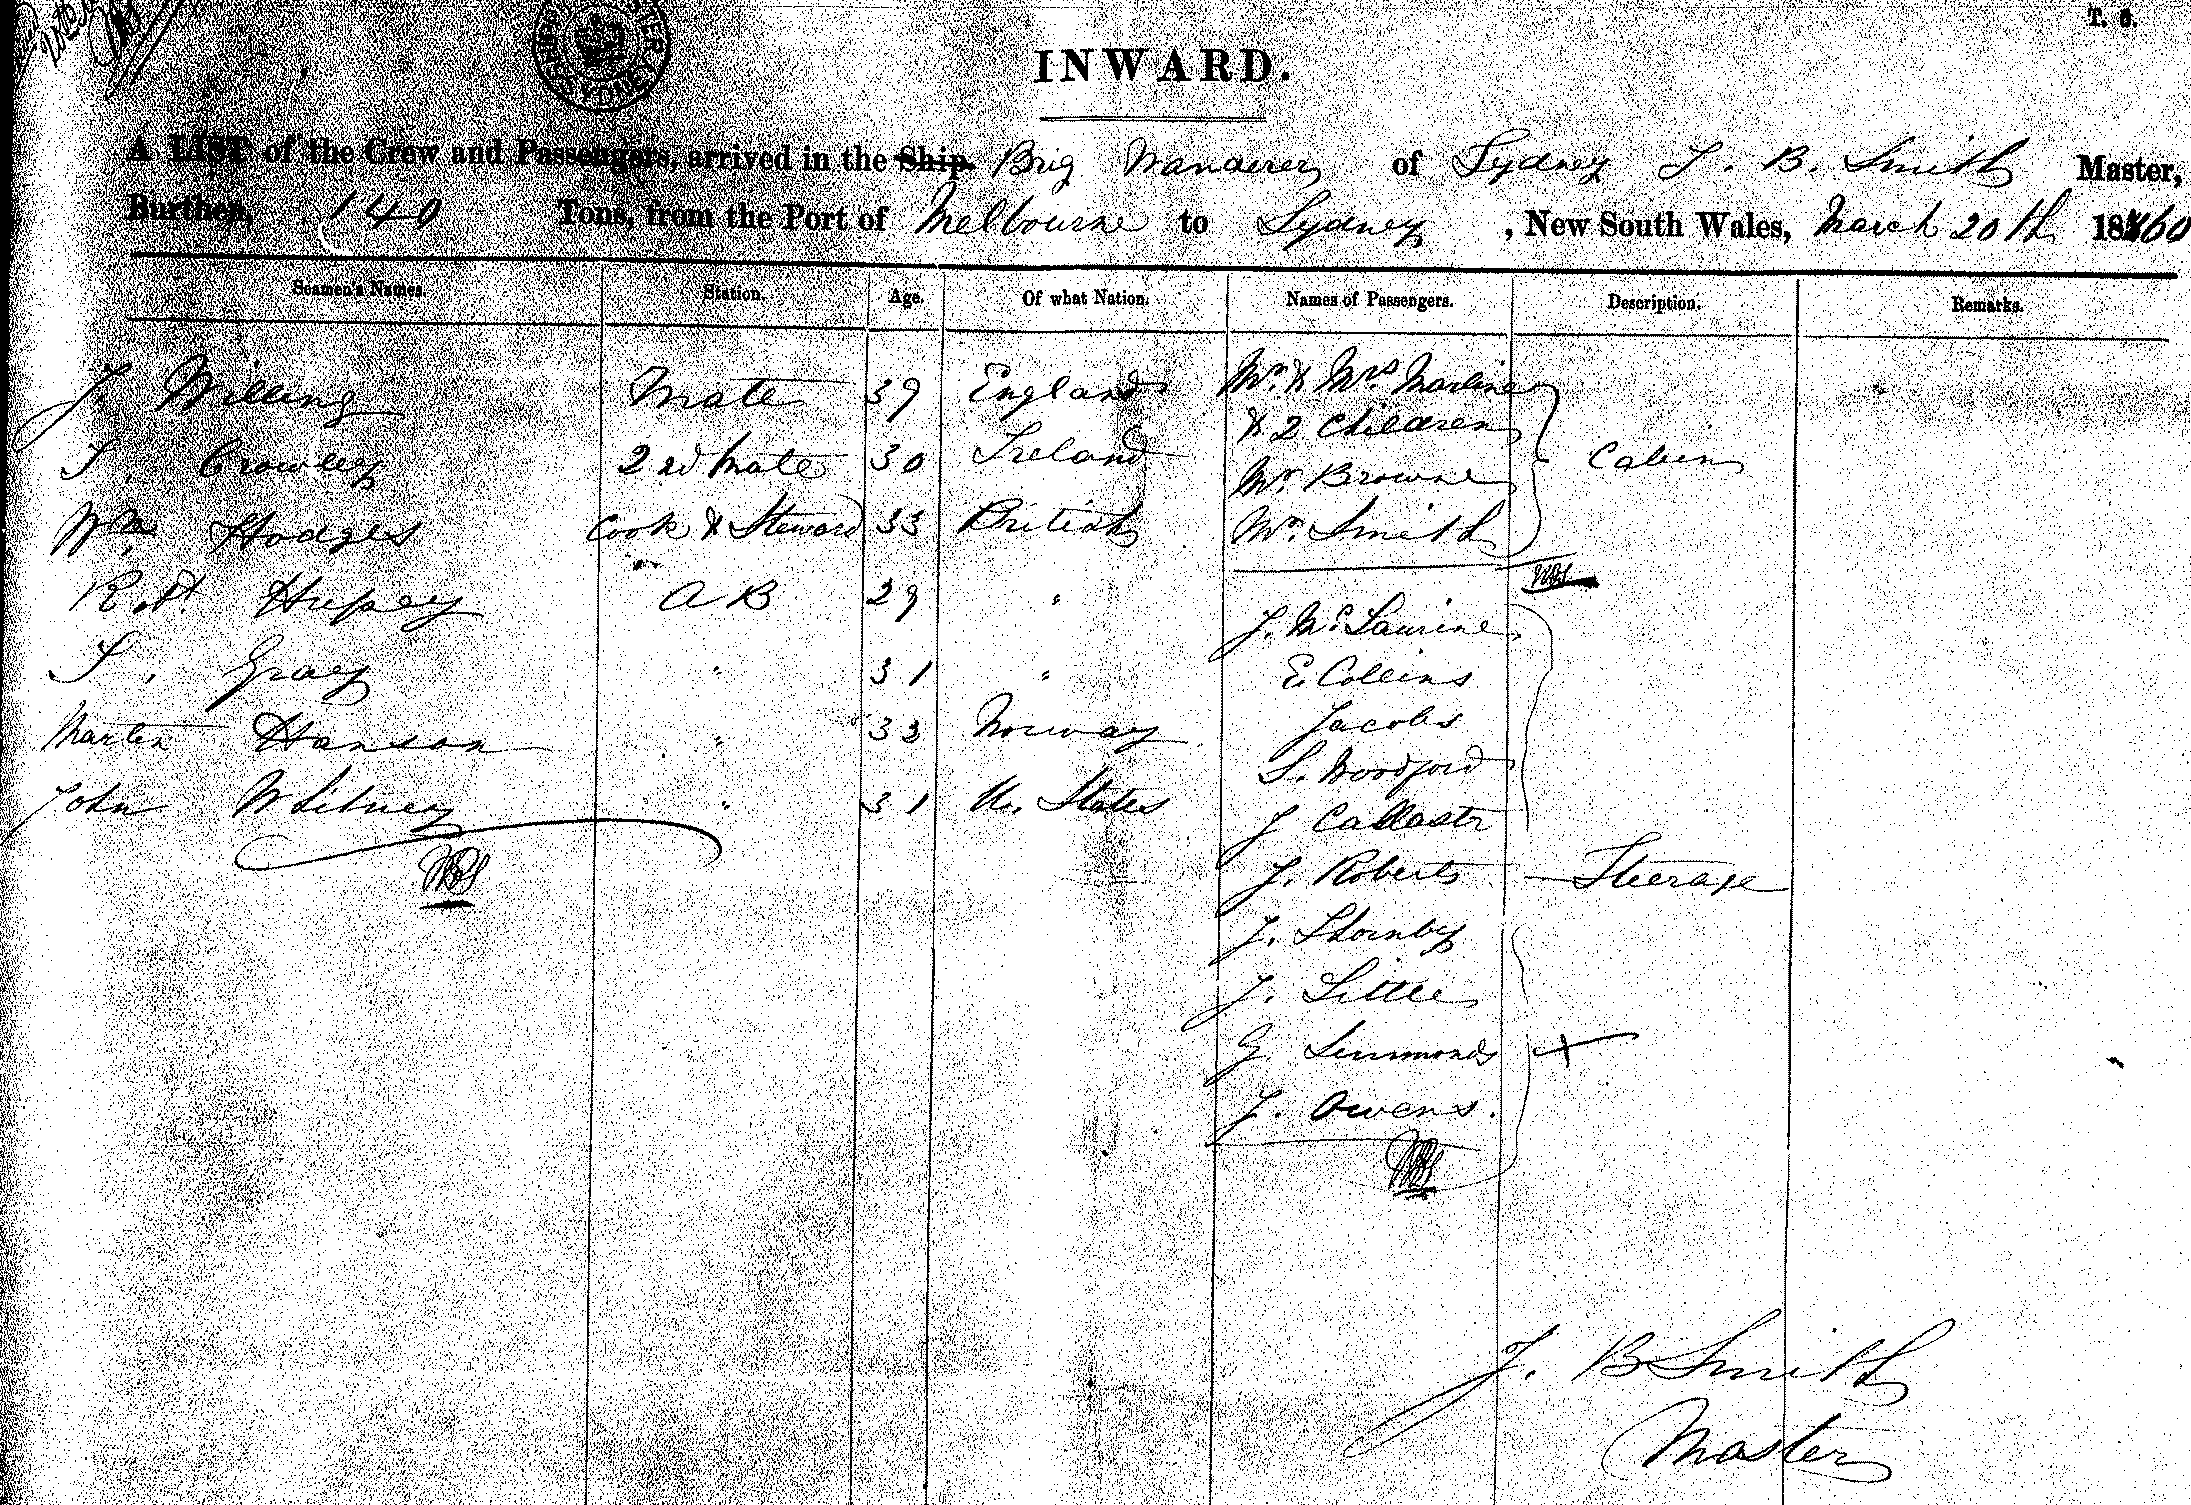 T. S.
INWARD.
A LIST of the Crew and Passengers, arrived in the Ship. Brig Wanderer of Sydney J. B. Smith Master,
Burthen, 140 Tons, from the Port of Melbourne to Sydney, New South Wales, March 20th 1860
Seamen's Names. Station. Age. Of what Nation. Names of Passengers. Description. Remarks.
J. Willing Mate 39 England Mr. & Mrs. Martine
& 2 Children
T. Crowley 2nd Mate 30 Ireland Cabin
Mr. Browne
Wm Hodges Cook & Steward 33 British Mr. Smith
Robt AB 29 "
J. McLaurine
T. Gray " 31 " E. Collins
Martin Hanson " 33 Norway Jacobs
S. Woodford
John Whitney " 31 U. States J
J. Roberts Steerage
J. Thornby
J. Little
G Simmonds
J. Owens.
J. B Smith
Master